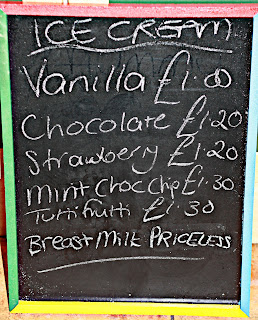 ICE CREAM
Vanilla £1.00
Chocolate £1.20
Strawberry £1.20
Mint Choc Chip £1.30
Tutti frutti £1.30
Breast Milk PRICELESS